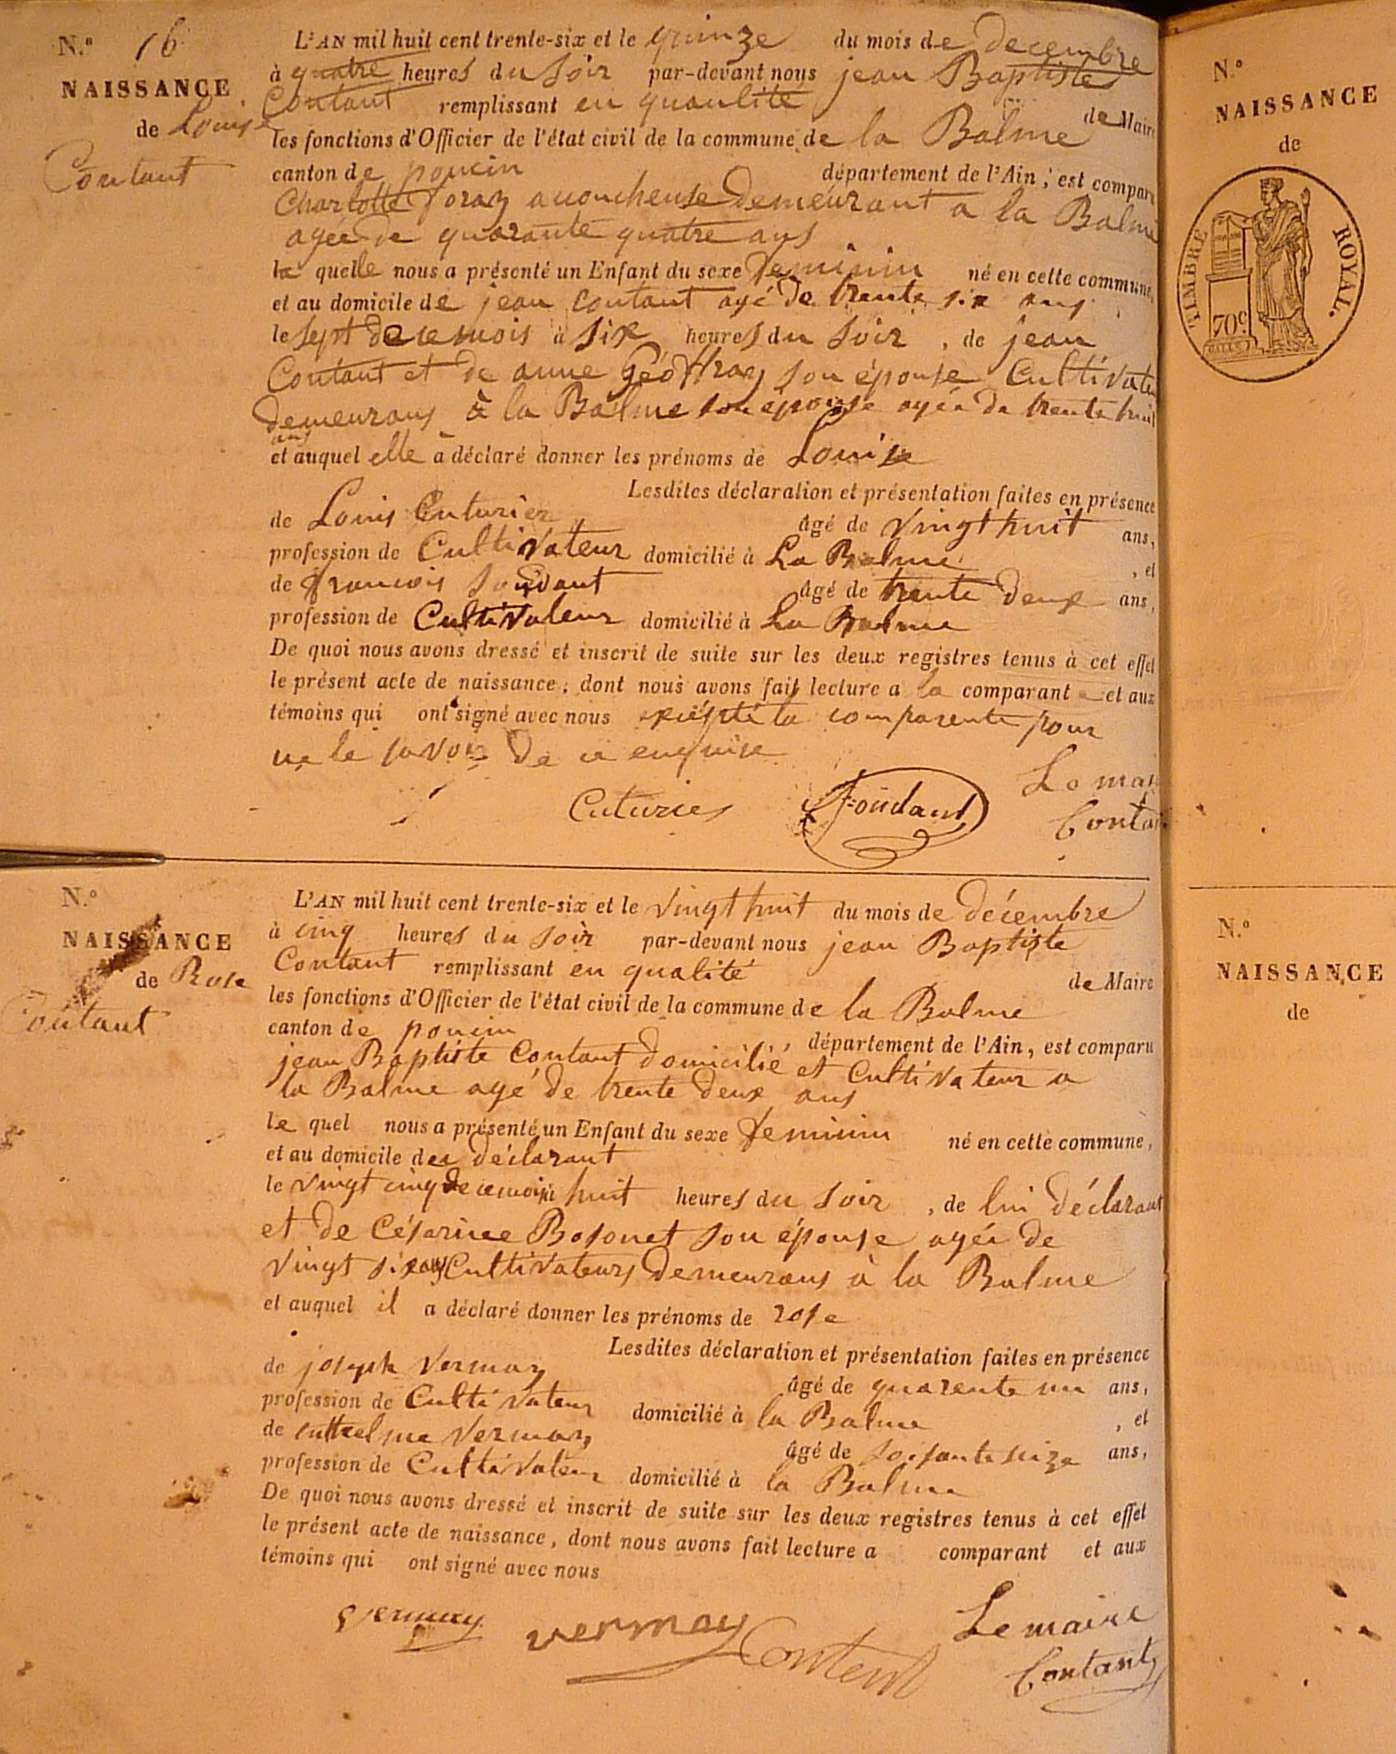 N.º 16
NAISSANCE
de Louise
Contant
L'AN mil huit cent trente-six et le quinze du mois de decembre
à quatre heures du Soir par-devant nous jean Baptiste
Contant remplissant en quanlité de Maire
les fonctions d'Officier de l'état civil de la commune de la Balme
canton de poncin département de l'Ain, est comparu
Charlotte acoucheuse demeurant a la Balme
agée de quarante quatre ans
la quelle nous a présenté un Enfant du sexe feminin né en cette commune,
et au domicile de jean contant agé de trente six ans
le sept de ce mois à six heures du Soir , de jean
Contant et de anne Géoffray son épouse Cultivateurs
demeurans à la Balme son épouse agée de trente huit
ans
et auquel elle à déclaré donner les prénoms de Louise
Lesdites déclaration et présentation faites en présence
de Louis Cuturier âgé de vingt huit ans,
profession de Cultivateur domicilié à La Balme , et
de françois foudant âgé de trente deux ans,
profession de Cultivateur domicilié à La Balme
De quoi nous avons dressé et inscrit de suite sur les deux registres tenus à cet effet
le présent acte de naissance, dont nous avons fait lecture a la comparante et aux
témoins qui ont signé avec nous la comparente pour
ne le savoir de ce enquise
Cuturier Foudant Le mai
Contan
N.º
NAISSANCE
de Rose
Contant
L'AN mil huit cent trente-six et le vingt huit du mois de décembre
à cinq heures du soir par-devant nous jean Baptiste
Contant remplissant en qualité de Maire
les fonctions d'Officier de l'état civil de la commune de la Balme
canton de poncin département de l'Ain, est comparu
jean Baptiste Contant domicilié et Cultivateur a
la Balme agé de trente deux ans
le quel nous a présenté un Enfant du sexe feminin né en cette commune,
et au domicile du déclarant
le vingt cinq de ce mois à huit heures du soir , de lui déclarant
et de Césarine Bosonet son épouse agée de
vingt six ans Cultivateurs demeurans à la Balme
et auquel il a déclaré donner les prénoms de rose
Lesdites déclaration et présentation faites en présence
de joseph Vermay âgé de quarente un ans,
profession de Cultivateur domicilié à la Balme , et
de Vermay âgé de soisante ans,
profession de Cultivateur domicilié à la Balme
De quoi nous avons dressé et inscrit de suite sur les deux registres tenus à cet effet
le présent acte de naissance, dont nous avons fait lecture a comparant et aux
témoins qui ont signé avec nous
vermay vermay Contant Le maire
Contant
N.º
NAISSANCE
de
TIMBRE ROYAL.
70c
N.º
NAISSANCE
de